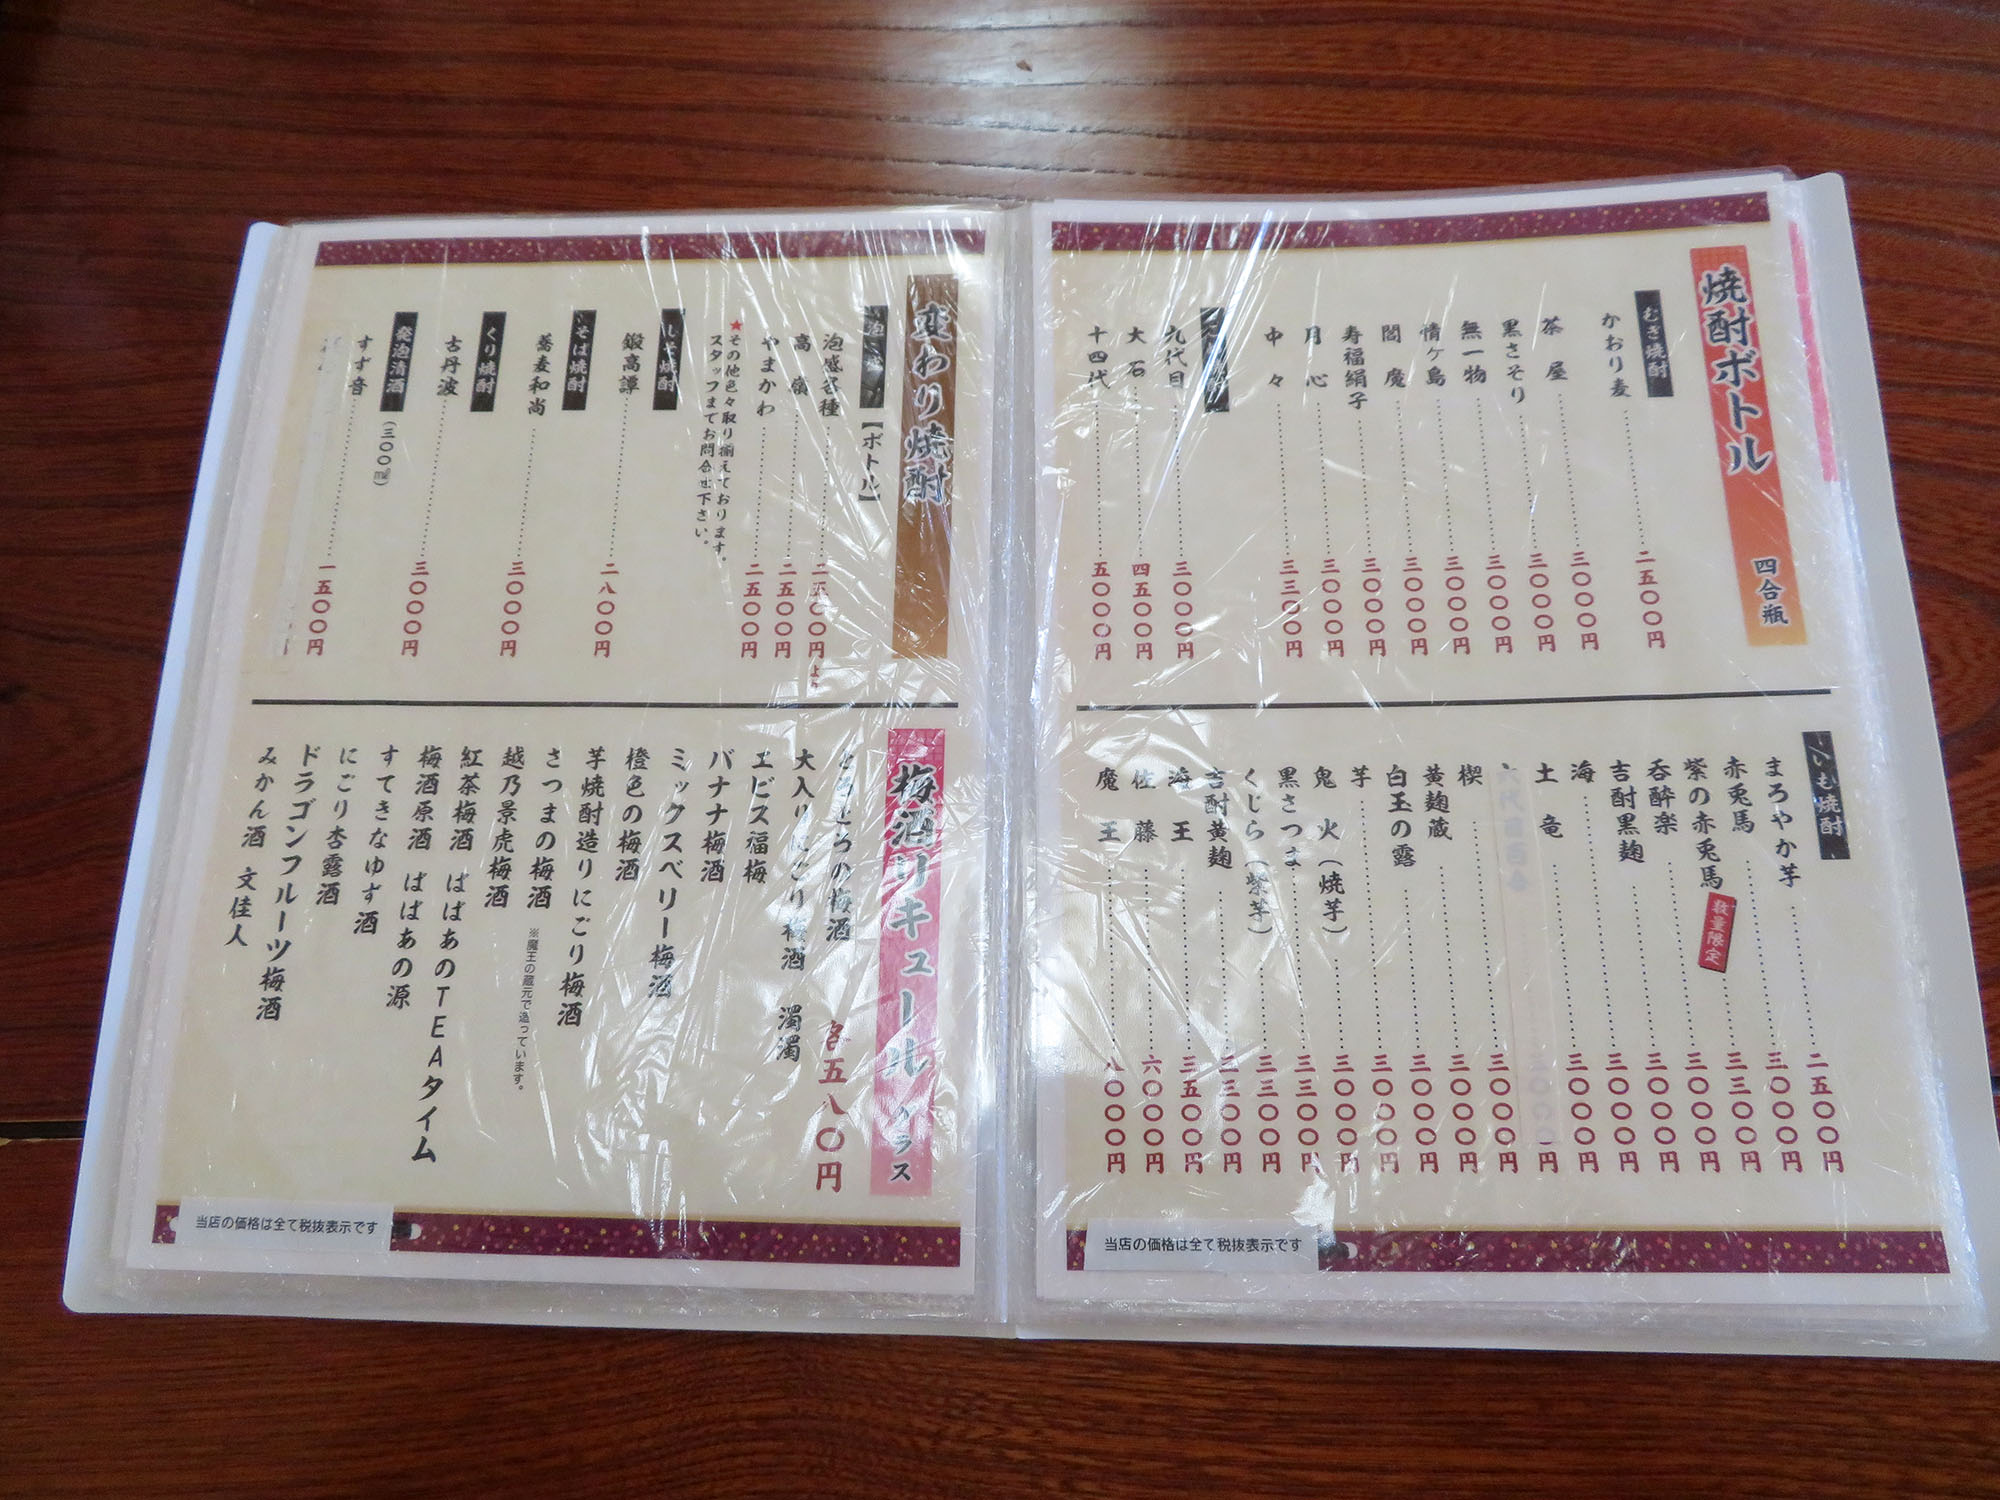 焼酎ボトル 四合瓶
むぎ焼酎
かおり麦 二五〇〇円
茶屋 三〇〇〇円
黒さそり 三〇〇〇円
無一物 三〇〇〇円
情ケ島 三〇〇〇円
閻魔 三〇〇〇円
寿福絹子 三〇〇〇円
月心 三〇〇〇円
中々 三三〇〇円
九代目 三〇〇〇円
大石 四五〇〇円
十四代 五〇〇〇円
いも焼酎
まろやか芋 二五〇〇円
赤兎馬 三〇〇〇円
紫の赤兎馬 数量限定 三三〇〇円
呑酔楽 三〇〇〇円
吉酎黒麹 三〇〇〇円
海 三〇〇〇円
土竜 三〇〇〇円
楔 三〇〇〇円
黄麹蔵 三〇〇〇円
白玉の露 三〇〇〇円
芋 三〇〇〇円
鬼火(焼芋) 三〇〇〇円
黒さつま 三〇〇〇円
くじら(紫芋) 三三〇〇円
吉酎黄麹 三三〇〇円
海王 三五〇〇円
佐藤 六〇〇〇円
魔王 八〇〇〇円
当店の価格は全て税抜表示です
変わり焼酎
【ボトル】
泡盛各種 二五〇〇円より
高嶺 二五〇〇円
やまかわ 二五〇〇円
★その他色々取り揃えております。
スタッフまでお問合せ下さい。
しそ焼酎
鍛高譚 二八〇〇円
そば焼酎
蕎麦和尚 三〇〇〇円
くり焼酎
古丹波 三〇〇〇円
発泡清酒(三〇〇㎖)
すず音 一五〇〇円
梅酒リキュール グラス
各五八〇円
とろとろの梅酒
大入りにごり梅酒 濁濁
ヱビス福梅
バナナ梅酒
ミックスベリー梅酒
橙色の梅酒
芋焼酎造りにごり梅酒
さつまの梅酒 ※魔王の蔵元で造っています。
越乃景虎梅酒
紅茶梅酒 ばばあのTEAタイム
梅酒原酒 ばばあの源
すてきなゆず酒
にごり杏露酒
ドラゴンフルーツ梅酒
みかん酒 文佳人
当店の価格は全て税抜表示です